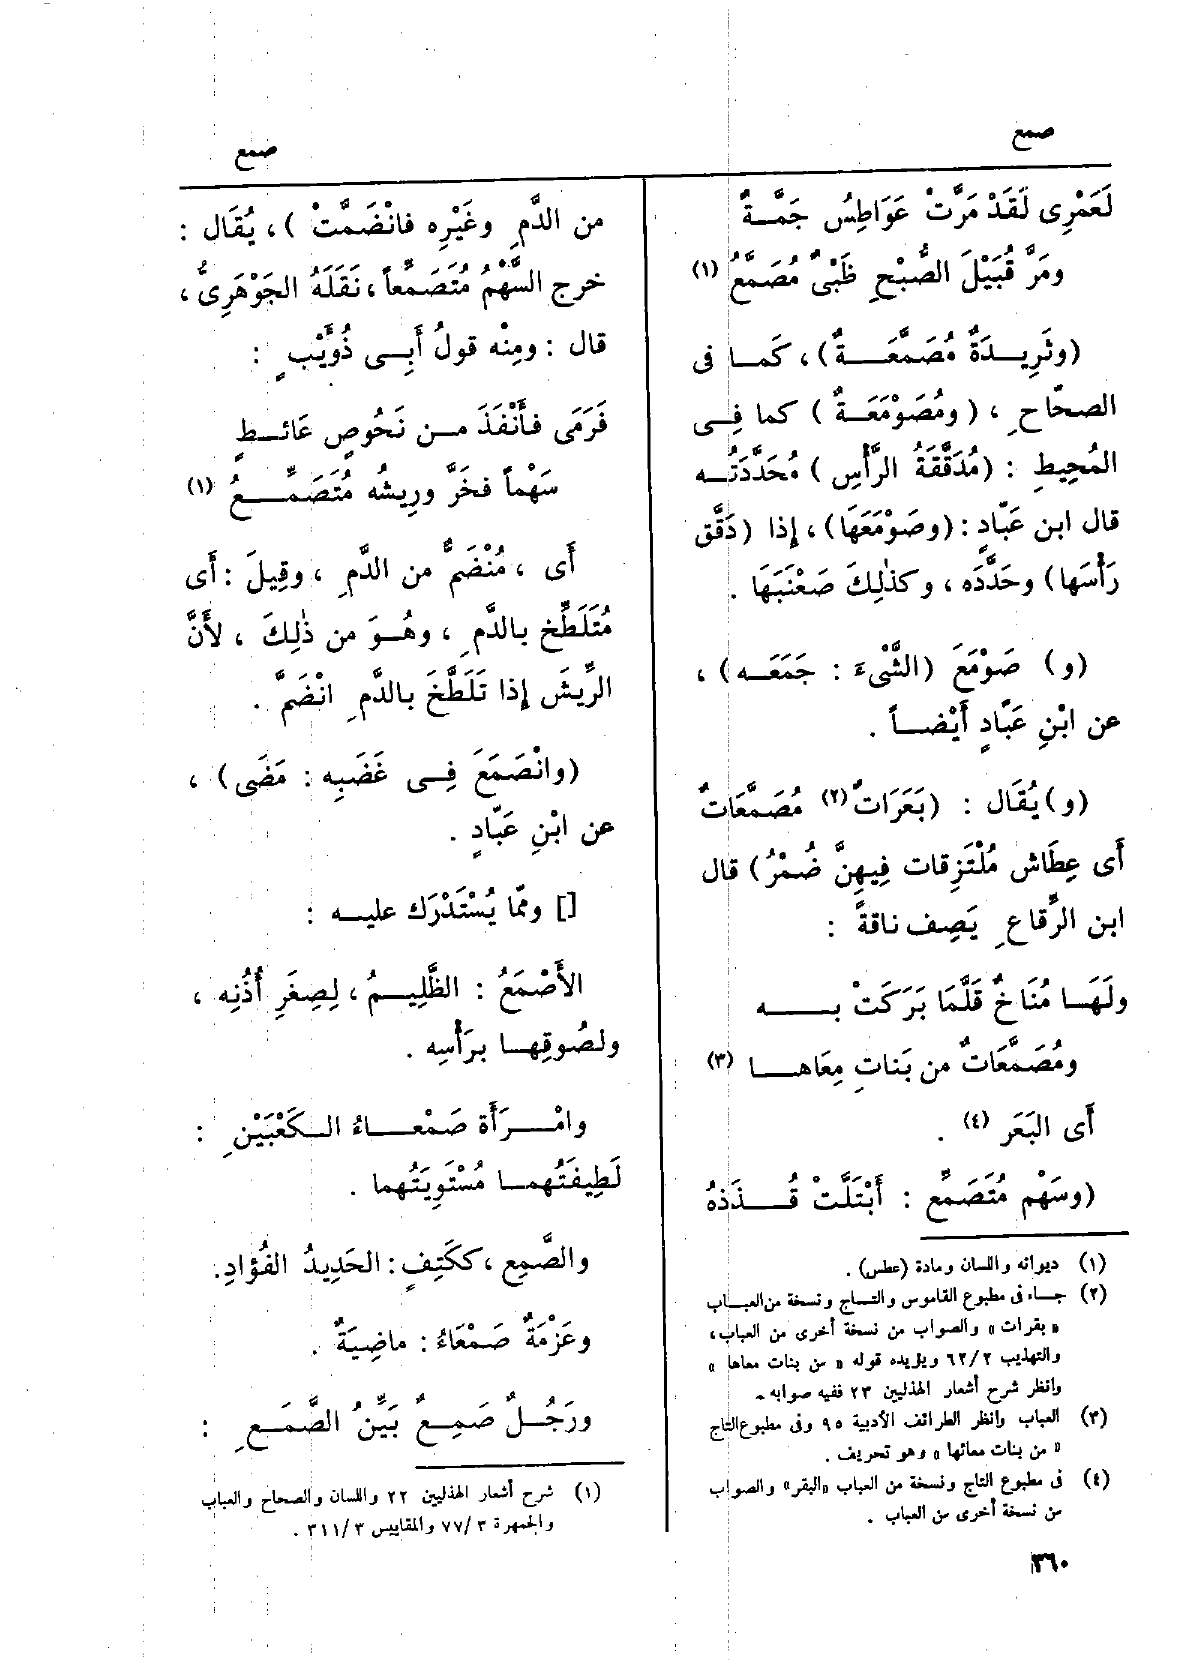 صمع
لَعَمْرِى لَقَدْ مَرَّتْ عَوَاطِسُ جَمَّـةٌ
ومَرَّ قُبَيْلَ الصُّبْحِ ظَبْىٌ مُصَمَّعُ (١)
(وثَرِيـدَةٌ مُصَمَّعَـةٌ)، كَمـا فى
الصحّاحِ ، (ومُصَوْمَعَـةٌ) كما فِـى
المُحِيطِ : (مُدَقَّقَةُ الرَّأْسِ) مُحَدَّدَتُـه
قال ابن عَبّادٍ : (وصَوْمَعَهَا)، إِذا (دَقَّق
رَأْسَها) وحَدَّدَه ، وكذٰلِكَ صَعْنَبَهَا .
(و) صَوْمَعَ (الشَّىْءَ : جَمَعَـه) ،
عن ابْنِ عَبّادٍ أَيْضـاً .
(و) يُقَال : (بَعَرَاتٌ (٢) مُصَمَّعَاتٌ
أَى عِطَاش مُلْتَزِقات فِيهِنَّ ضُمْرٌ) قال
ابن الرِّقاعِ يَصِف ناقةً :
ولَهَـا مُنَاخٌ قَلَّمَا بَرَكَتْ بـه
ومُصَمَّعَاتٌ من بَنَاتِ مِعَاهـا (٣)
أَى البَعَر (٤) .
(وسَهْم مُتَصَمِّع : أَبْتَلَّتْ قُـذَذهُ
(١) ديوانه واللسان ومادة (عطس) .
(٢) جـاء فى مطبوع القاموس والتـاج ونسخة من العبـاب
« بقرات » والصواب من نسخة أخرى من العباب،
والتهذيب ٦٢/٢ ويؤيده قوله « من بنات معاها »
وانظر شرح أشعار الهذليين ٢٣ ففيه صوابه .
(٣) العباب وانظر الطرائف الأدبية ٩٥ وفى مطبوع التاج
« من بنات معائها » وهو تحريف .
(٤) فى مطبوع التاج ونسخة من العباب «البقر» والصواب
من نسخة أخرى من العباب .
٣٦٠
صمع
من الدَّمِ وغَيْرِه فانْضَمَّتْ )، يُقَال :
خرج السَّهْمُ مُتَصَمِّعاً، نَقَلَهُ الجَوْهَرِىُّ ،
قال : ومِنْه قولُ أَبِـى ذُوَيْبٍ :
فَرَمَى فأَنْفَذَ مـن نَحُوصٍ عَائـطٍ
سَهْماً فخَرَّ ورِيشُه مُتَصَمِّـعُ (١)
أَى ، مُنْضَمٌّ من الدَّمِ ، وقِيلَ : أَى
مُتَلَطِّخ بالدَّمِ ، وهُـوَ من ذٰلِكَ ، لأَنَّ
الرِّيشَ إِذا تَلَطَّخَ بالدَّمِ انْضَمَّ .
(وانْصَمَعَ فِـى غَضَبِه : مَضَى) ،
عن ابْنِ عَبّادٍ .
[] وممّا يُسْتَدْرَك عليـه :
الأَصْمَعُ : الظَّلِيـمُ ، لِصِغَرِ أُذُنِه ،
ولصُوقِهـا برَأْسِه .
وامْـرَأَة صَمْعـاءُ الـكَعْبَيْنِ :
لَطِيفَتُهمـا مُسْتَوِيَتُهما .
والصَّمِع ، ككَتِفٍ : الحَدِيدُ الفُؤادِ.
وعَزْمَةٌ صَمْعَاءُ : ماضِيَةٌ .
ورَجُـلٌ صَمِـعٌ بَيِّنُ الصَّمَـعِ :
(١) شرح أشعار الهذليين ٢٢ واللسان والصحاح والعباب
والجمهرة ٧٧/٣ والمقاييس ٣١١/٣ .